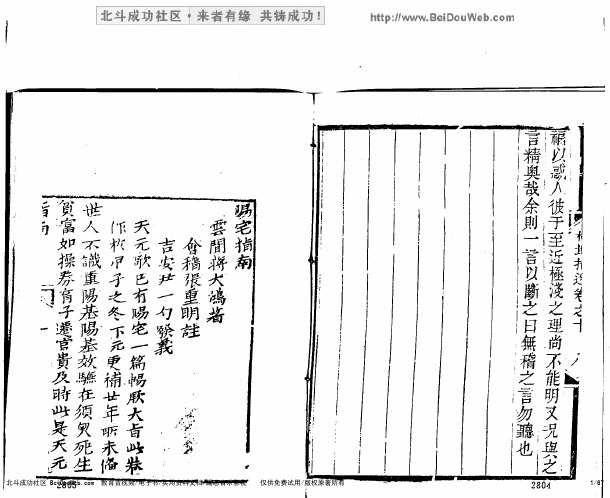 北斗成功社区·来者有缘 共铸成功!
http://www.BeiDouWeb.com
禍以惑人彼于至近極淺之理尚不能明又况與之
言精奥哉余則一言以斷之曰無稽之言勿聽也
陽宅指南
雲間蔣大鴻著
會稽張重明註
吉安尹一勺發義
天元歌已有陽宅一篇暢厥大旨此裝
作於甲子之冬下元更補廿年所未備
世人不識重陽基陽基效驗在須臾死生
貧富如操券育子遷官貴及時此是天元
指南
一
北斗成功社区 BeiDouWeb.com
仅供免费试用/版权原著所有
2805
2804
1/6